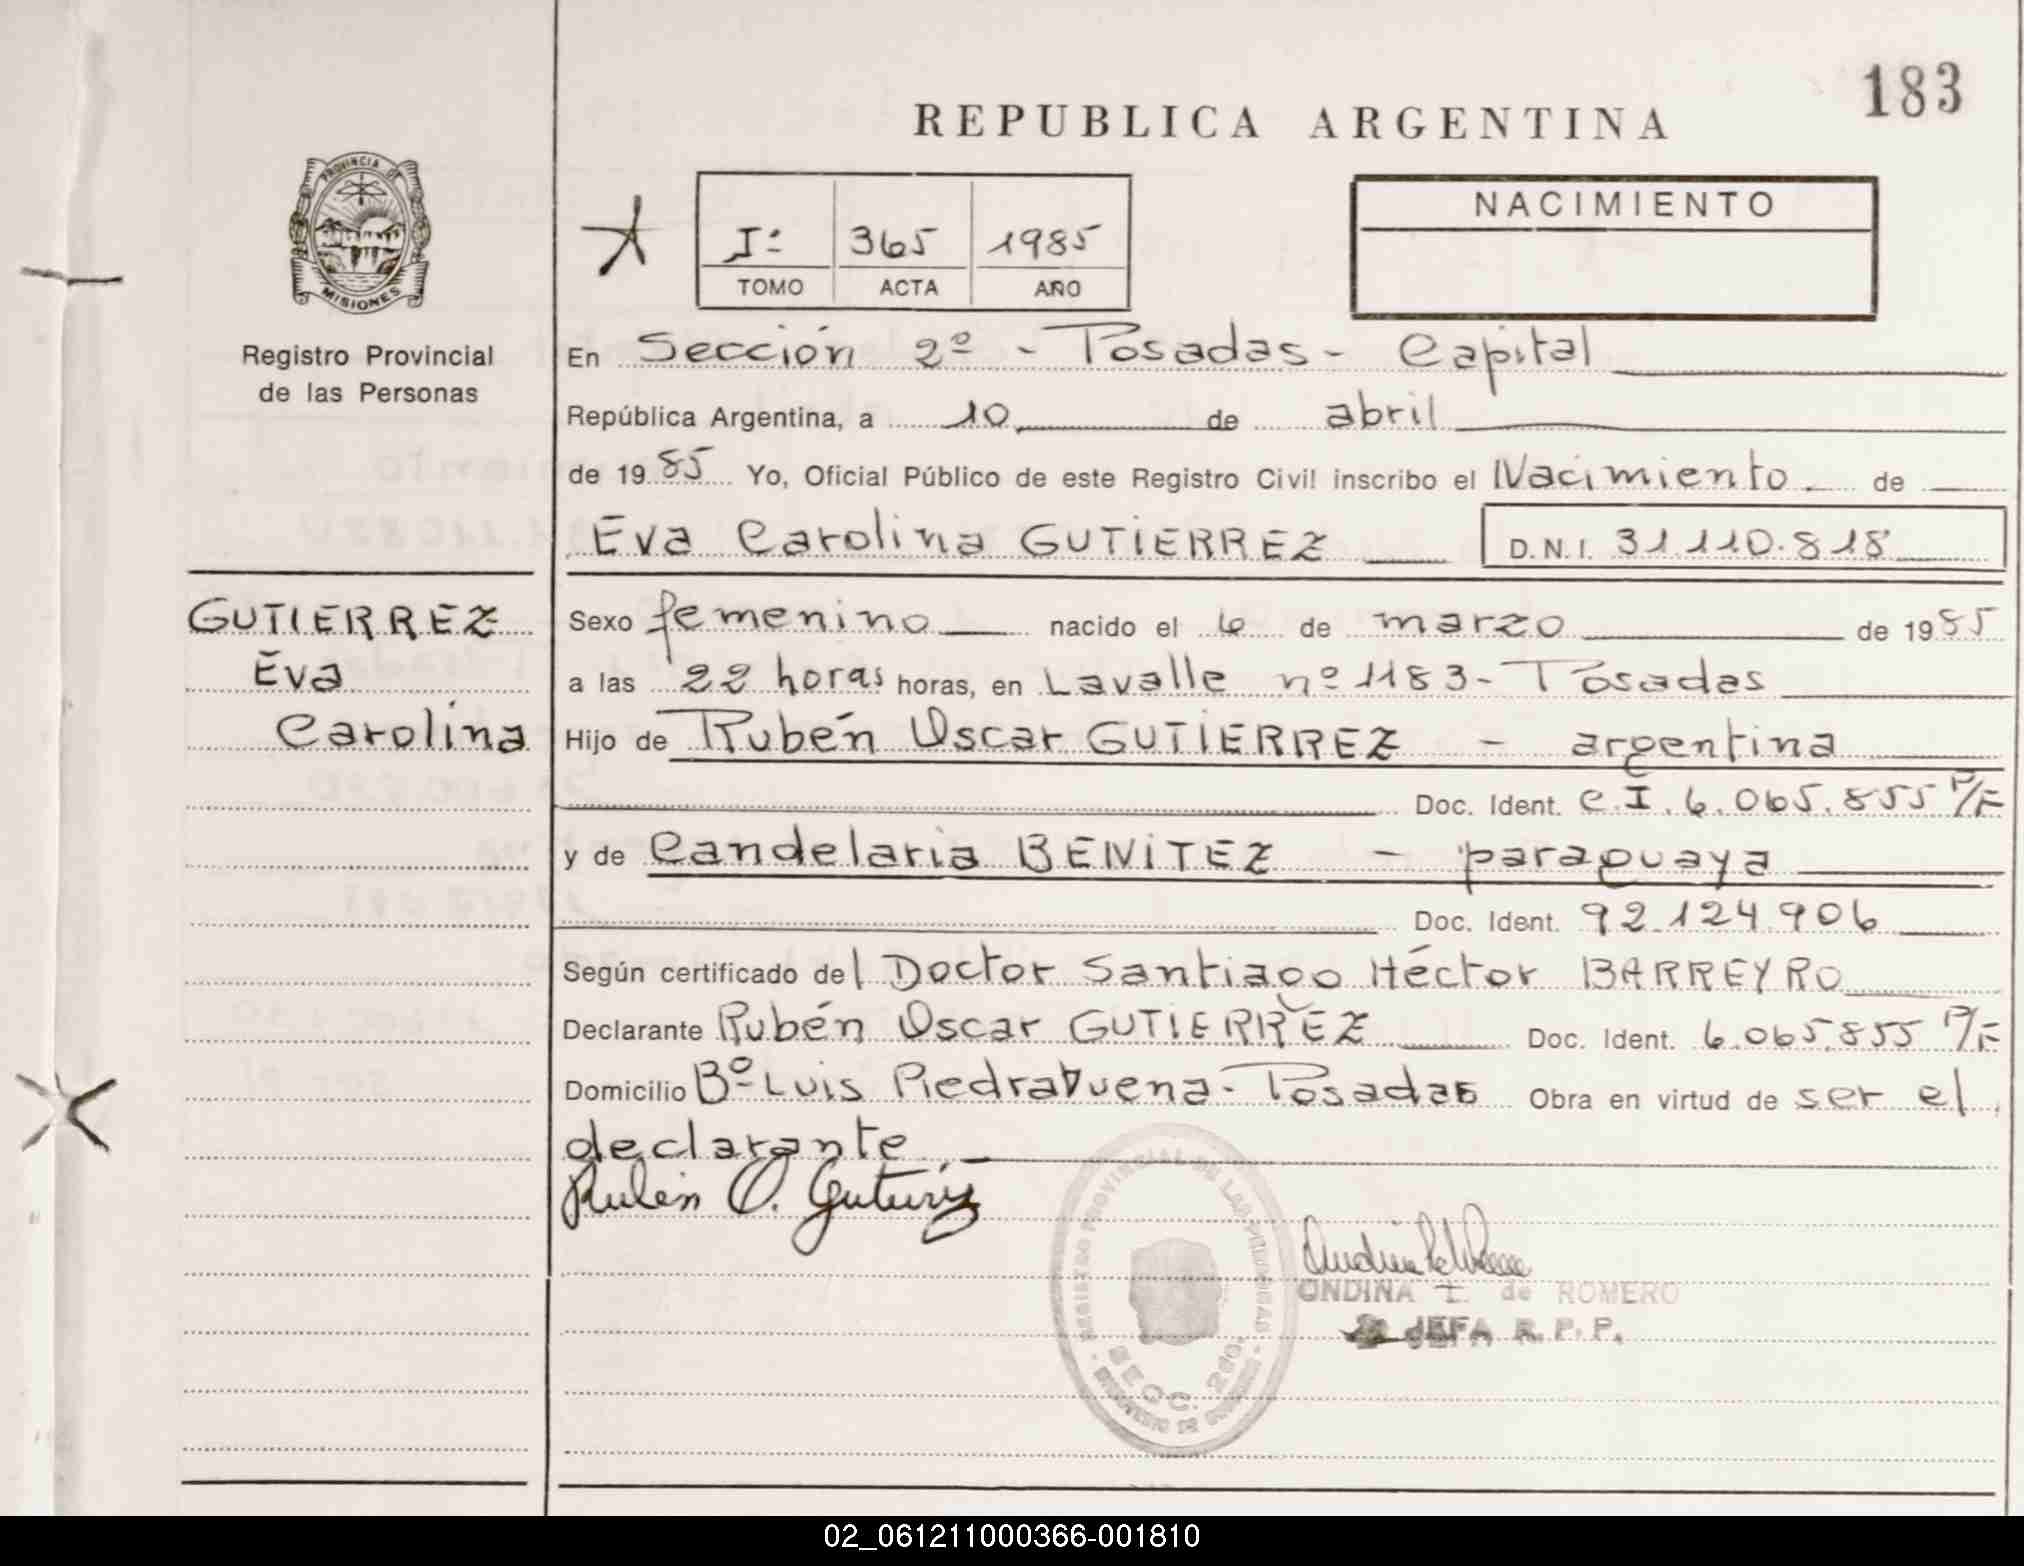 183
REPUBLICA ARGENTINA
PROVINCIA DE
MISIONES
Registro Provincial
de las Personas
Iº 365 1985
TOMO ACTA AÑO
NACIMIENTO
En Sección 2º - Posadas - Capital
República Argentina, a 10 de abril
de 1985 Yo, Oficial Público de este Registro Civil inscribo el Nacimiento de
Eva Carolina GUTIERREZ D.N.I. 31.110.818
GUTIERREZ
Eva
Carolina
Sexo femenino nacido el 6 de marzo de 1985
a las 22 horas horas, en Lavalle nº 1183 - Posadas
Hijo de Rubén Oscar GUTIERREZ - argentina
Doc. Ident. C.I. 6.065.855 P/F
y de Candelaria BENITEZ - paraguaya
Doc. Ident. 92.124.906
Según certificado del Doctor Santiago Héctor BARREYRO
Declarante Rubén Oscar GUTIERREZ Doc. Ident. 6.065.855 P/F
Domicilio Bº Luis Piedrabuena - Posadas Obra en virtud de ser el
declarante
Rubén O. Gutierrez
REGISTRO PROVINCIAL DE LAS PERSONAS
SECC. 2da.
MINISTERIO DE GOBIERNO
ONDINA I. de ROMERO
JEFA R.P.P.
02_061211000366-001810